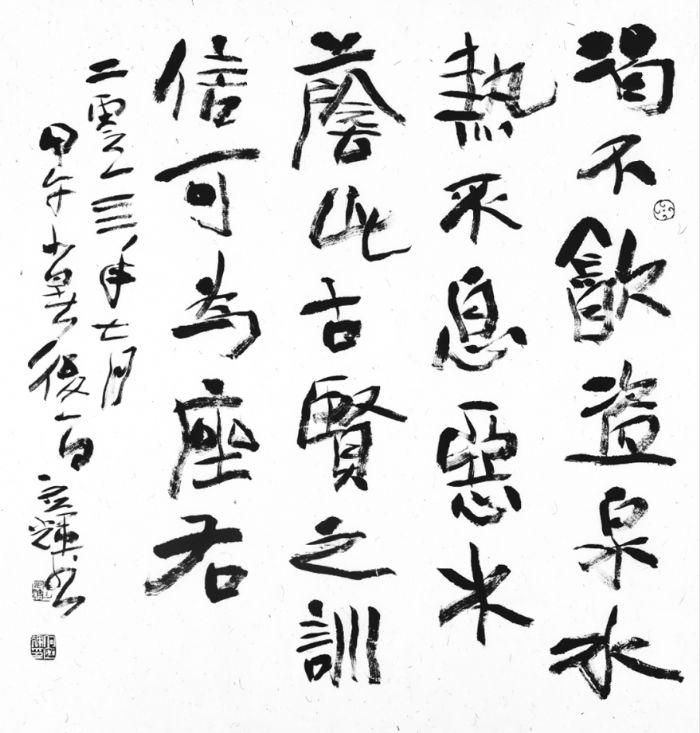 渴不飲盜泉水
熱不息惡木
蔭此古賢之訓
信可為座右
二零一三年七月
甲午小暑後一日 立輝书